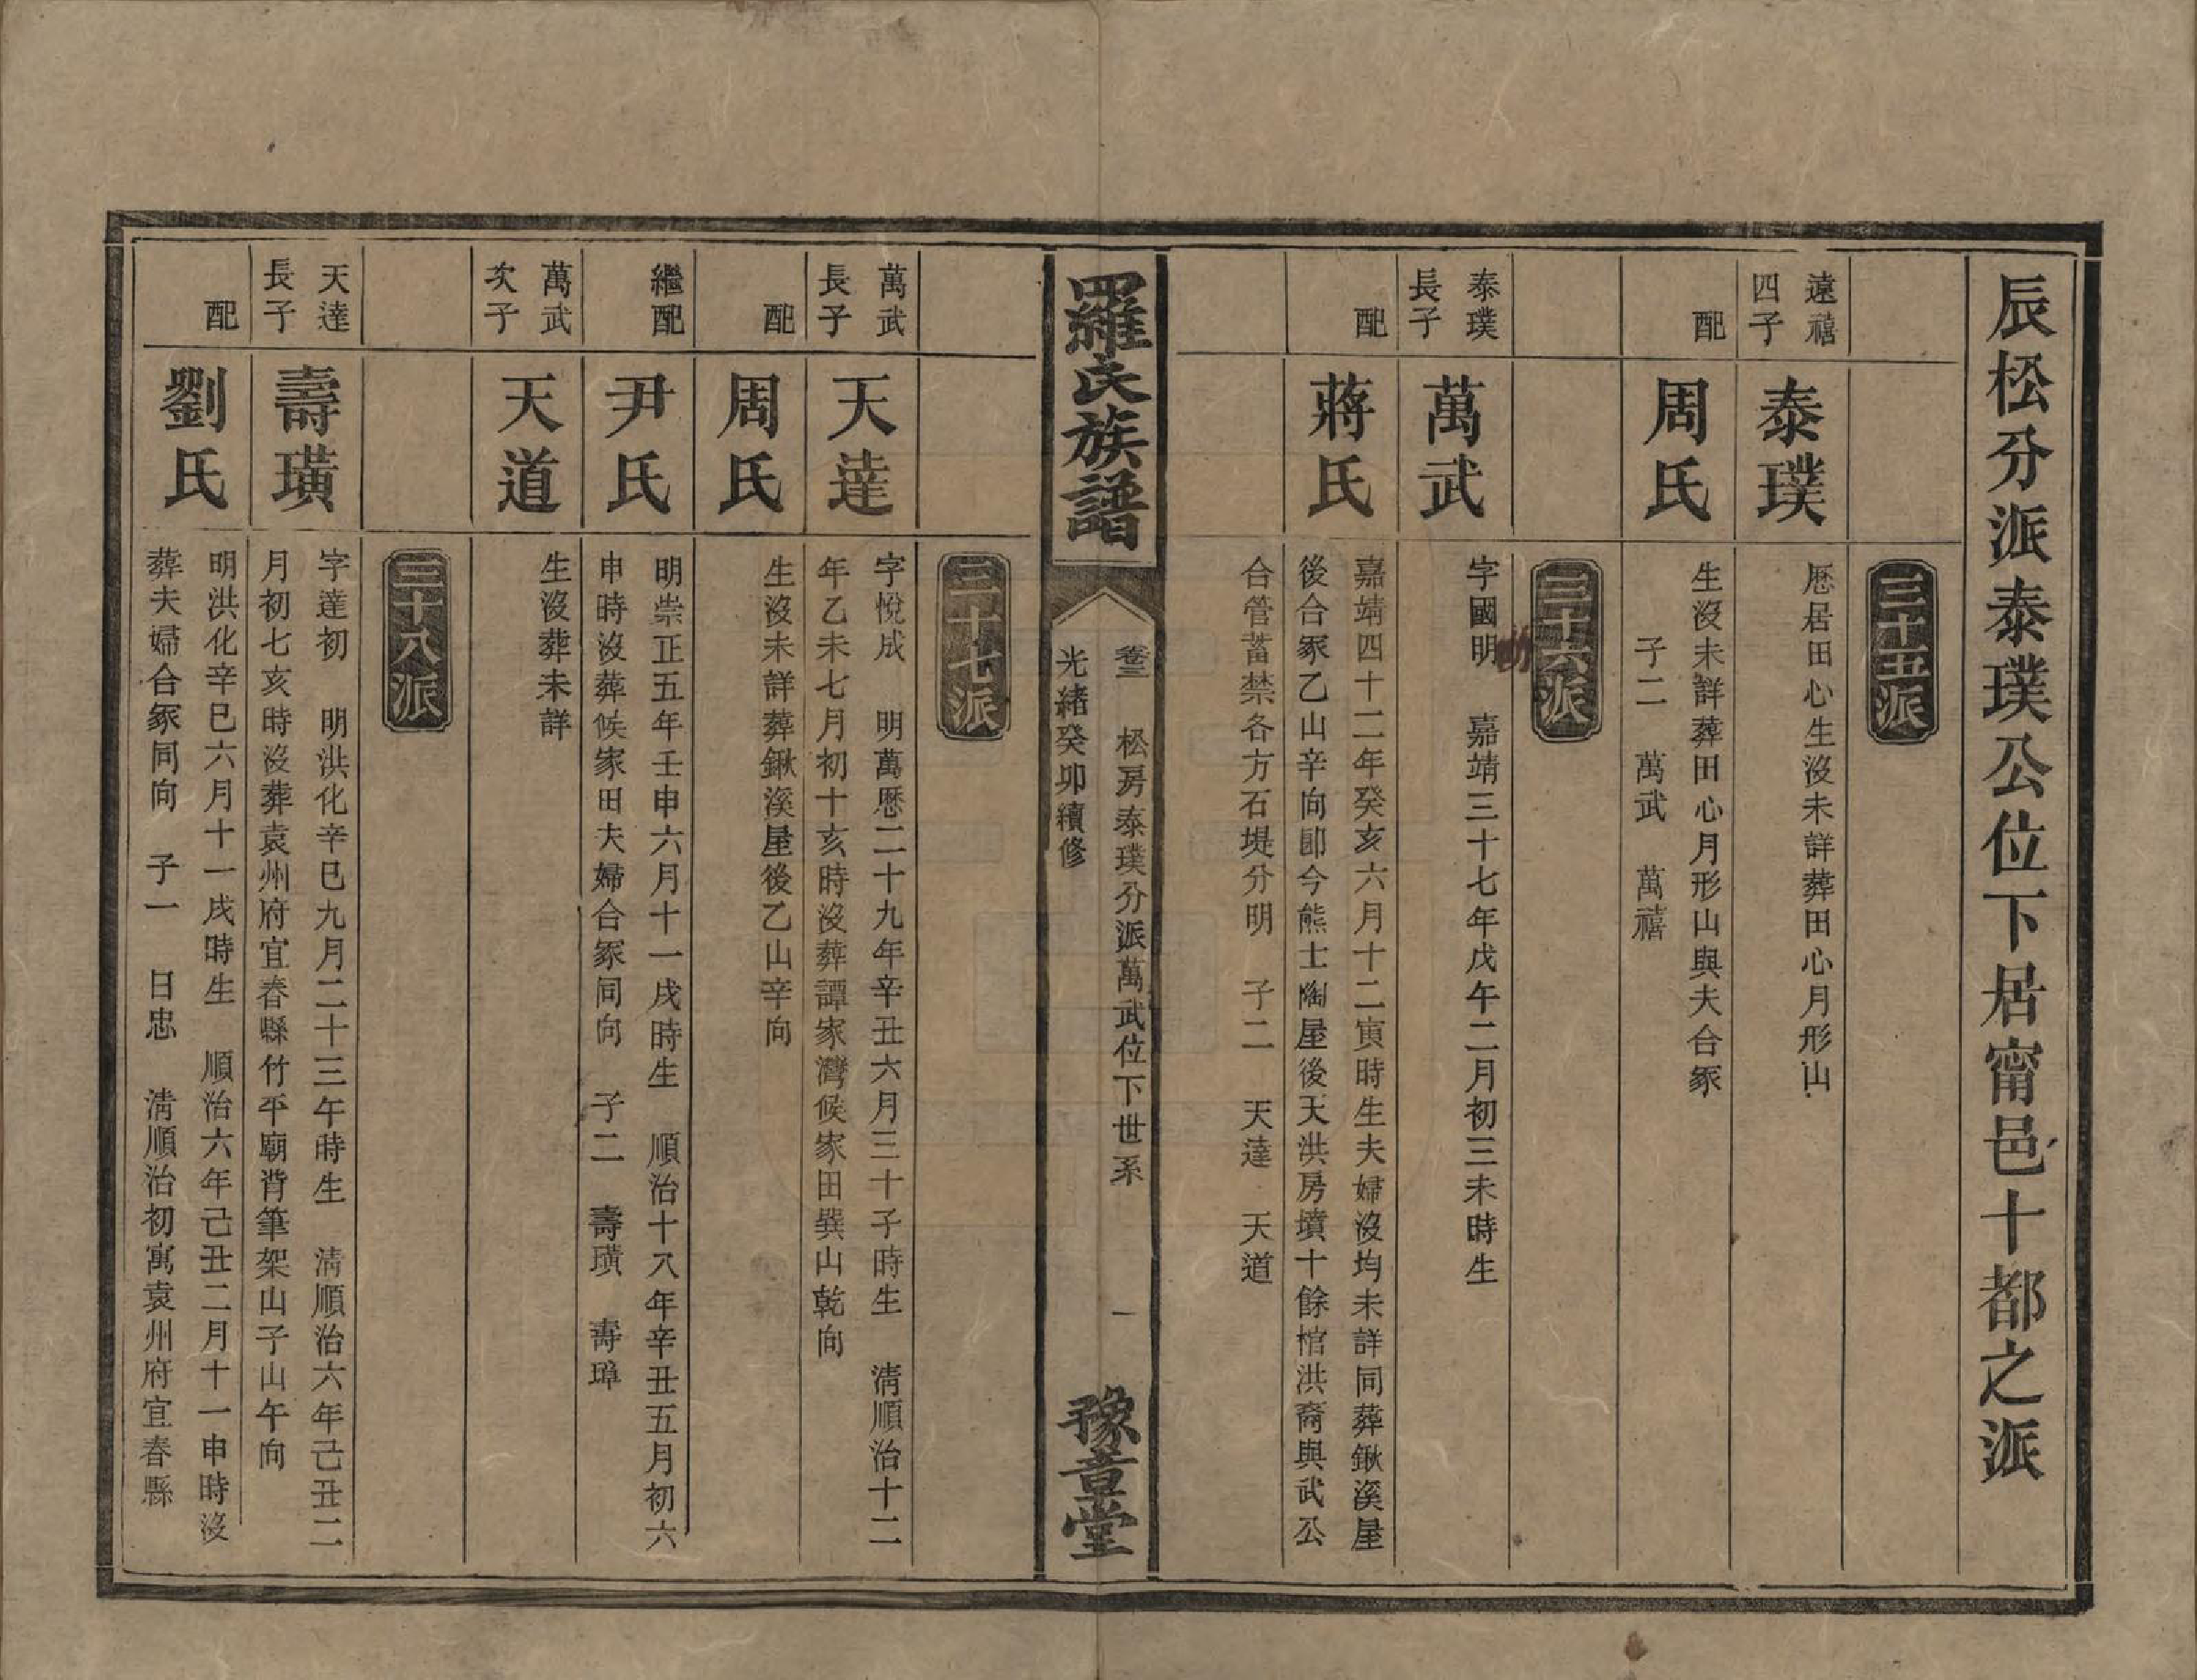 辰松分派泰璞公位下居甯邑十都之派
三十五派
遠禧
四子
泰璞
厯居田心生沒未詳葬田心月形山
配
周氏
生沒未詳葬田心月形山與夫合冢
子二　萬武　萬禧
三十六派
泰璞
長子
萬武
字國明　嘉靖三十七年戊午二月初三未時生
配
蔣氏
嘉靖四十二年癸亥六月十二寅時生夫婦沒均未詳同葬鍬溪屋
後合冢乙山辛向卽今熊士陶屋後天洪房墳十餘棺洪裔與武公
合管蓄禁各方石堤分明　子二　天達　天道
羅氏族譜
卷三　松房泰璞分派萬武位下世系　一
光緒癸卯續修
豫章堂
三十七派
萬武
長子
天達
字悅成　明萬厯二十九年辛丑六月三十子時生　淸順治十二
年乙未七月初十亥時沒葬譚家灣候家田巽山乾向
配
周氏
生沒未詳葬鍬溪屋後乙山辛向
繼配
尹氏
明崇正五年壬申六月十一戌時生　順治十八年辛丑五月初六
申時沒葬候家田夫婦合冢同向　子二　壽璜　壽璋
萬武
次子
天道
生沒葬未詳
三十八派
天達
長子
壽璜
字達初　明洪化辛巳九月二十三午時生　淸順治六年己丑二
月初七亥時沒葬袁州府宜春縣竹平廟背筆架山子山午向
配
劉氏
明洪化辛巳六月十一戌時生　順治六年己丑二月十一申時沒
葬夫婦合冢同向　子一　日忠　淸順治初寓袁州府宜春縣